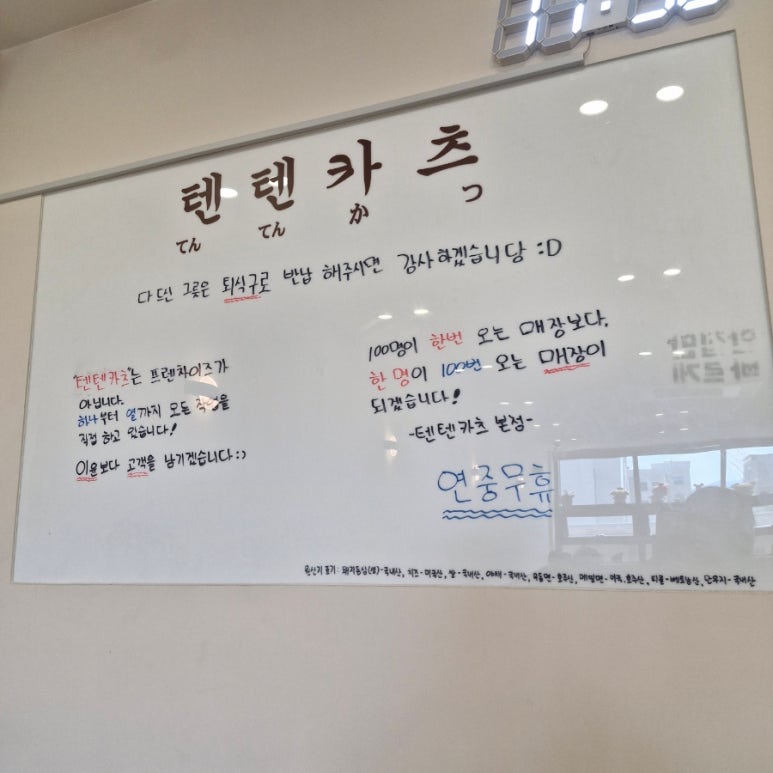 텐텐카츠
てんてんかつ
다 드신 그릇은 퇴식구로 반납 해주시면 감사하겠습니당 :D
"텐텐카츠"는 프렌차이즈가
아닙니다.
하나부터 열까지 모든 작업을
직접 하고 있습니다!
이윤보다 고객을 남기겠습니다:)
100명이 한번 오는 매장보다,
한 명이 100번 오는 매장이
되겠습니다!
-텐텐카츠 본점-
연중무휴
원산지 표기 : 돼지등심(생)-국내산, 치즈-미국산, 쌀-국내산, 야채-국내산, 우동면-호주산, 메밀면-미국.호주산, 타올-베트남산, 단무지-국내산